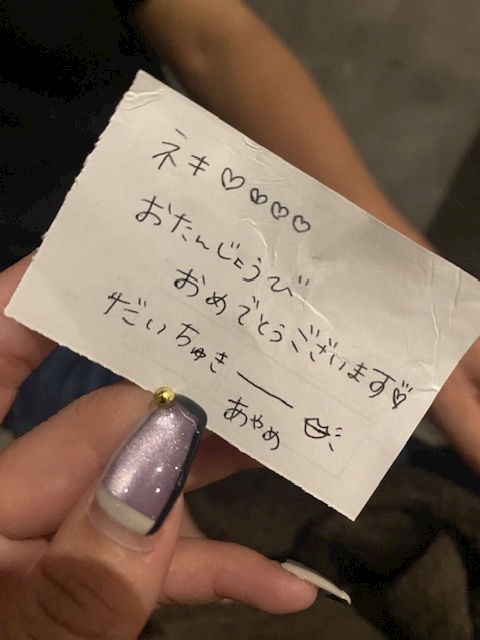 ネキ♡♡♡♡
おたんじょうび
おめでとうございます♡
だいちゅきー
あやめ